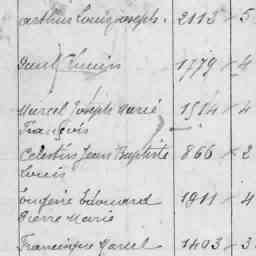 Arthur Louis Joseph. 2113 5
1779 4
Marcel Joseph Marie 1914 4
François
Celestin Jean Baptiste 866 2
Louis
Eugène Edouard 1911 4
Pierre Marie
Françoise Marcel 1403 3